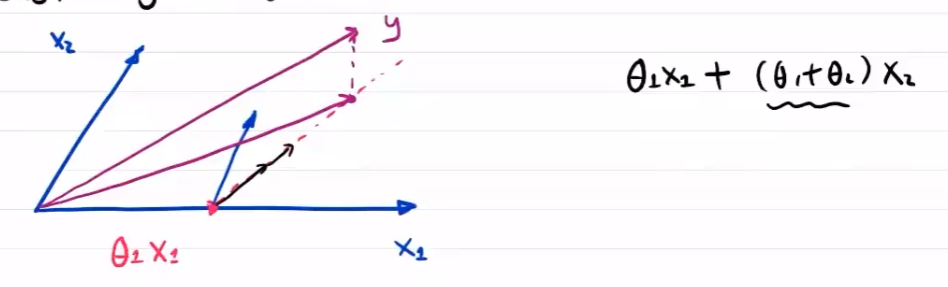 y
x₂
θ₁x₁ + (θ₁+θ₂) x₂
θ₁x₁
x₁